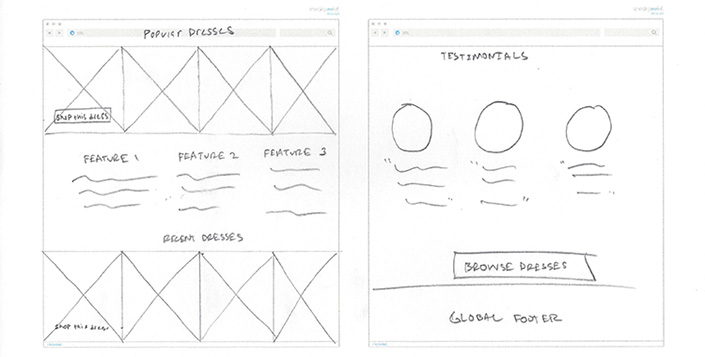 POPULAR DRESSES
Shop this dress
FEATURE 1
FEATURE 2
FEATURE 3
RECENT DRESSES
Shop this dress
TESTIMONIALS
BROWSE DRESSES
GLOBAL FOOTER